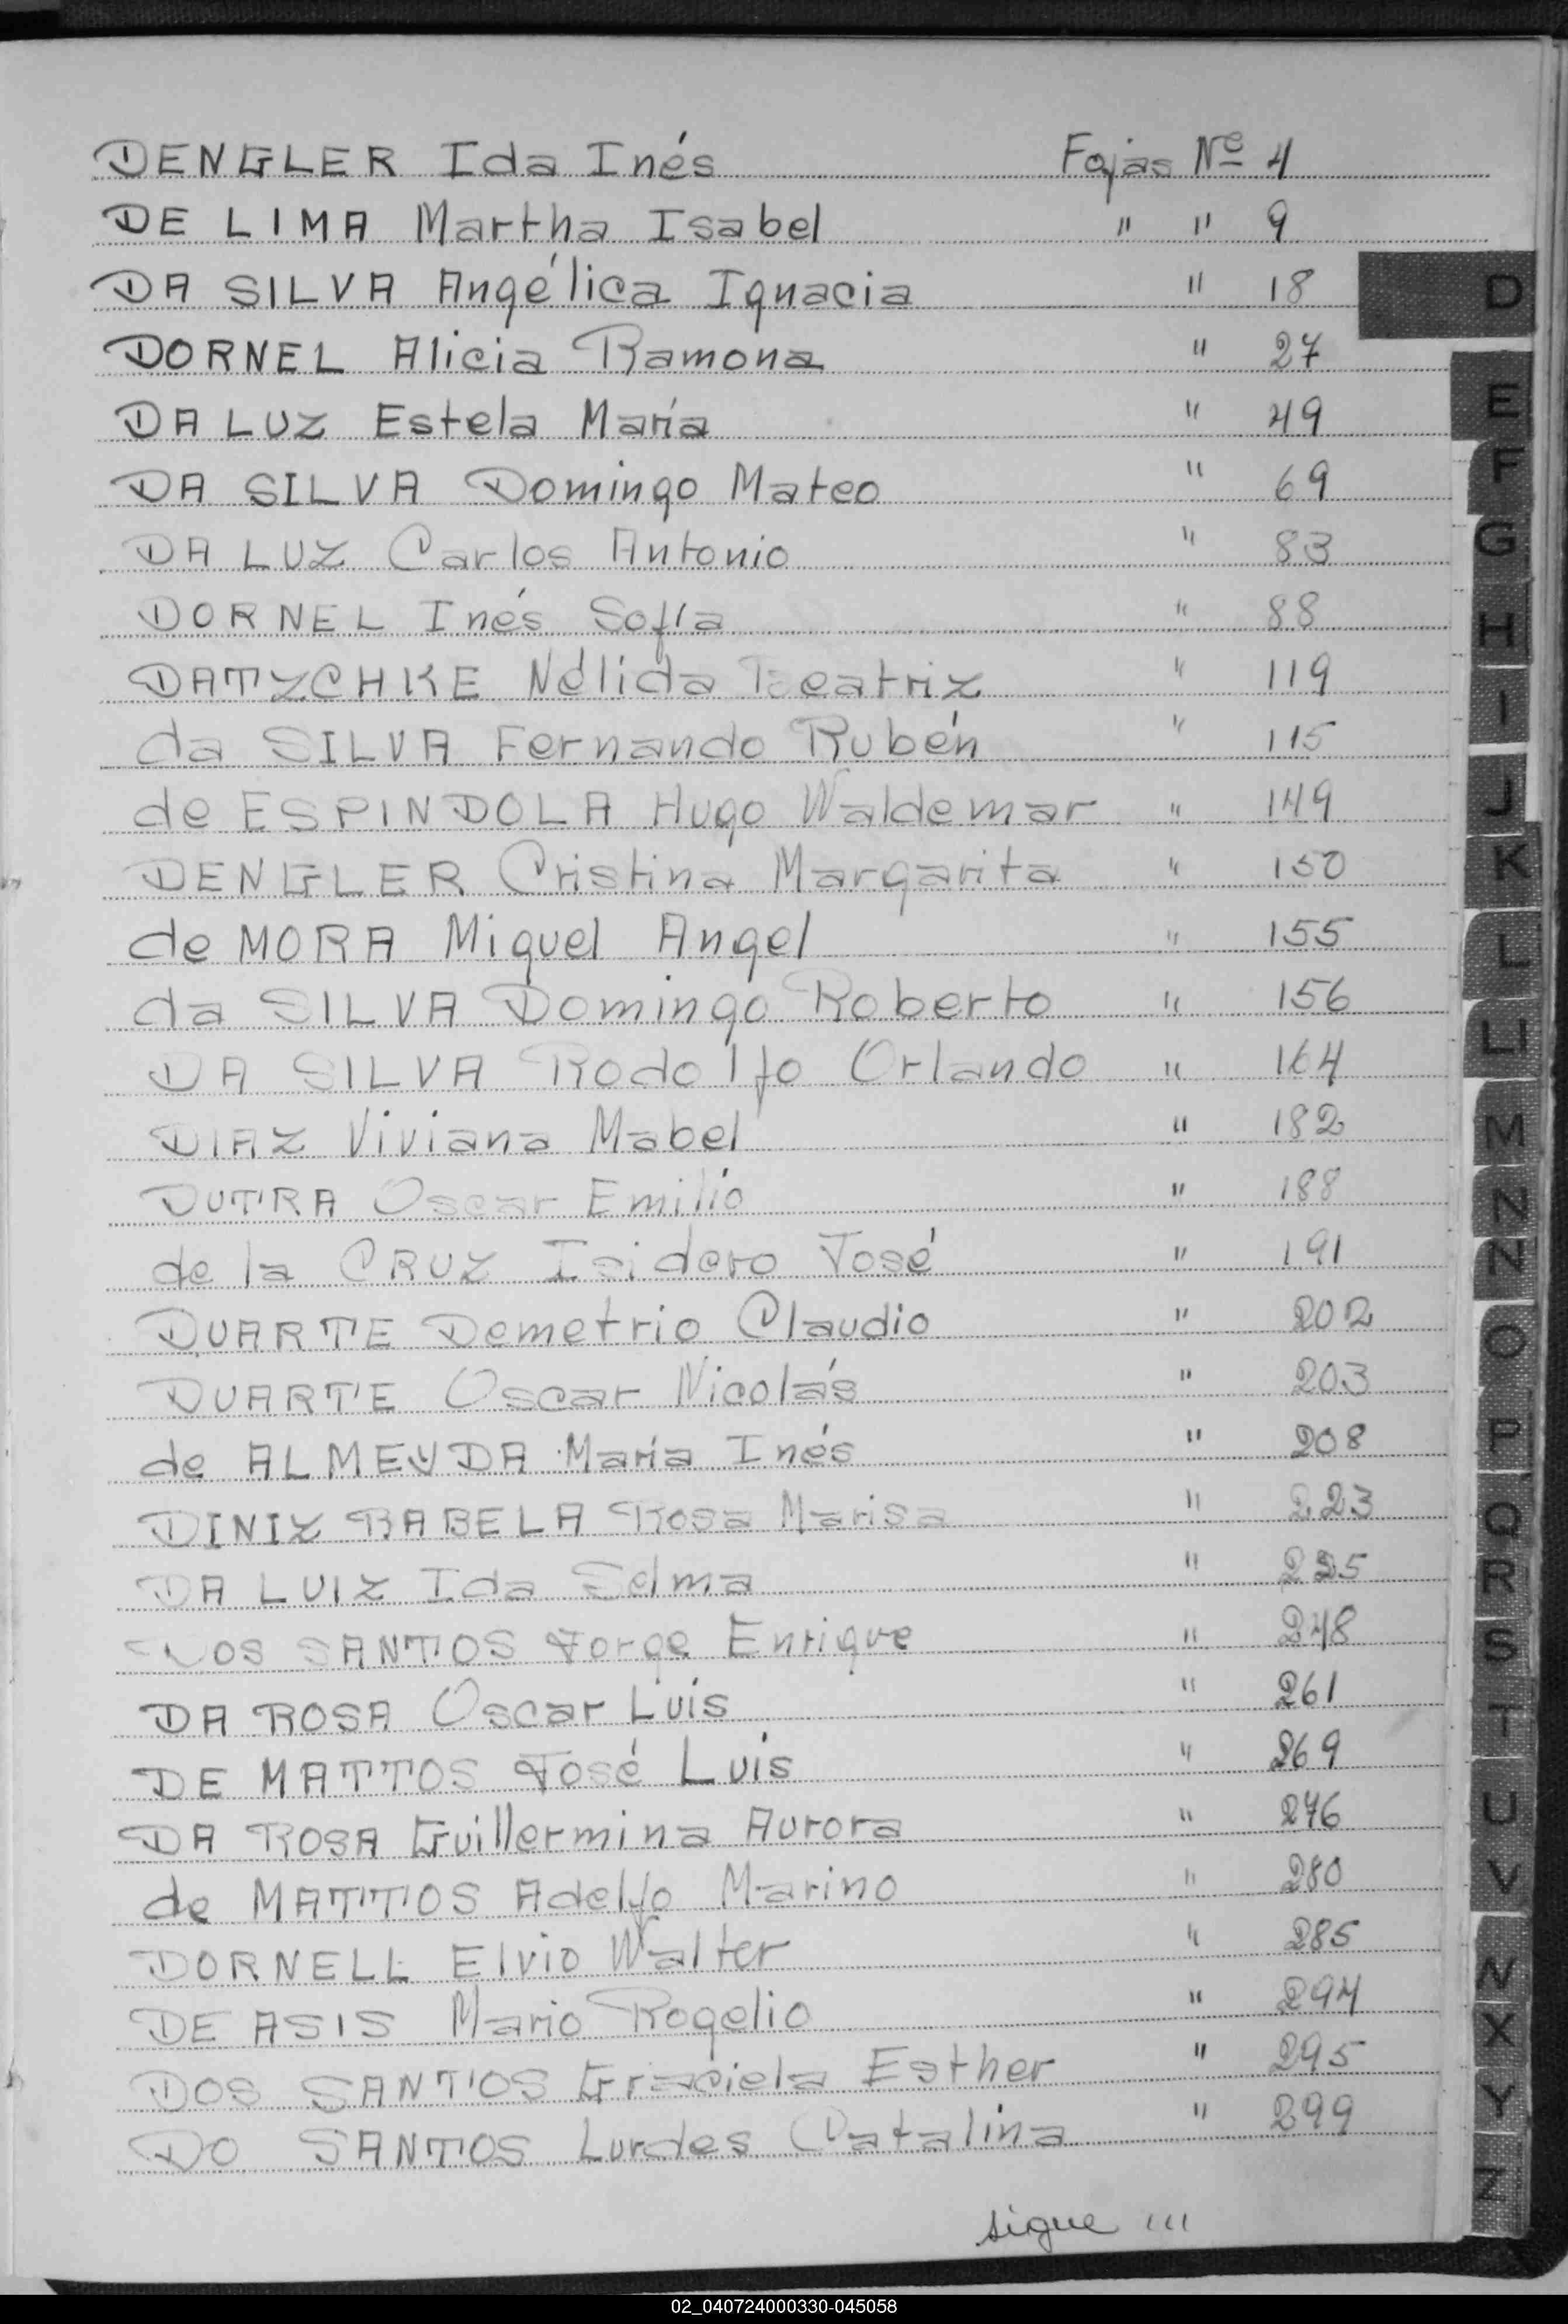 DENGLER Ida Inés Fojas Nº 4
DE LIMA Martha Isabel " " 9
DA SILVA Angélica Ignacia " 18
DORNEL Alicia Ramona " 27
DA LUZ Estela María " 49
DA SILVA Domingo Mateo " 69
DA LUZ Carlos Antonio " 83
DORNEL Inés Sofía " 88
DATZCHKE Nélida Beatriz " 119
da SILVA Fernando Rubén " 115
de ESPINDOLA Hugo Waldemar " 149
DENGLER Cristina Margarita " 150
de MORA Miguel Angel " 155
da SILVA Domingo Roberto " 156
DA SILVA Rodolfo Orlando " 164
DIAZ Viviana Mabel " 182
DUTRA Oscar Emilio " 188
de la CRUZ Isidoro José " 191
DUARTE Demetrio Claudio " 202
DUARTE Oscar Nicolás " 203
de ALMEYDA María Inés " 208
DINIZ RABELA Rosa Marisa " 223
DA LUIZ Ida Selma "
DOS SANTOS Jorge Enrique " 248
DA ROSA Oscar Luis " 261
DE MATTOS José Luis " 269
DA ROSA Guillermina Aurora " 276
de MATTOS Adelfo Marino " 280
DORNELL Elvio Walter " 285
DE ASIS Mario Rogelio " 294
DOS SANTOS Graciela Esther " 295
DO SANTOS Lurdes Catalina " 299
sigue ///
D
E
F
G
H
I
J
K
L
LL
M
N
Ñ
O
P
Q
R
S
T
U
V
W
X
Y
Z
02_040724000330-045058